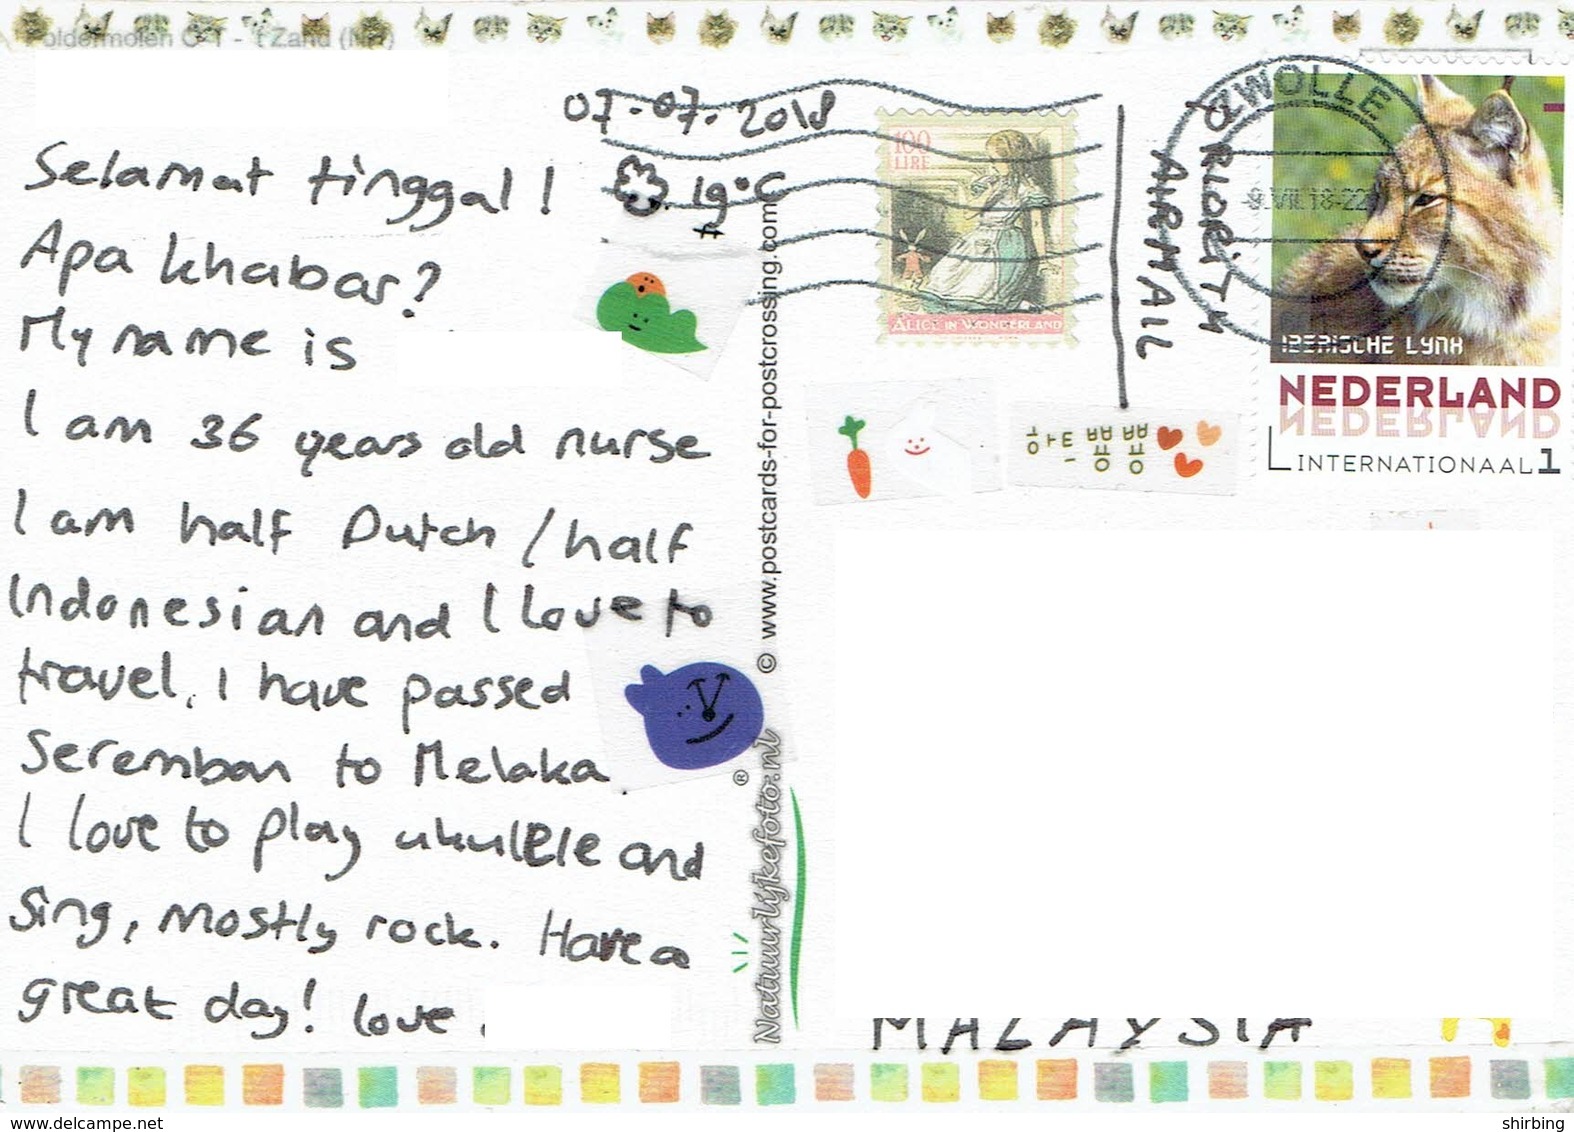 Poldermolen O-T - 't Zand (NH)
07-07-2018
19°C
Selamat tinggal!
Apa khabar?
My name is
I am 36 years old nurse
I am half Dutch / half
Indonesian and I love to
travel. I have passed
Seremban to Melaka
I love to play ukulele and
sing, mostly rock. Have a
great day! love
© www.postcards-for-postcrossing.com
Natuurlijkefoto.nl ®
100
LIRE
ALICE IN WONDERLAND
PRIORITY
AIRMAIL
ZWOLLE
VII.18-22
IBERISCHE LYNX
NEDERLAND
NEDERLAND
INTERNATIONAAL 1
하트뿅뿅
MALAYSIA
www.delcampe.net
shirbing